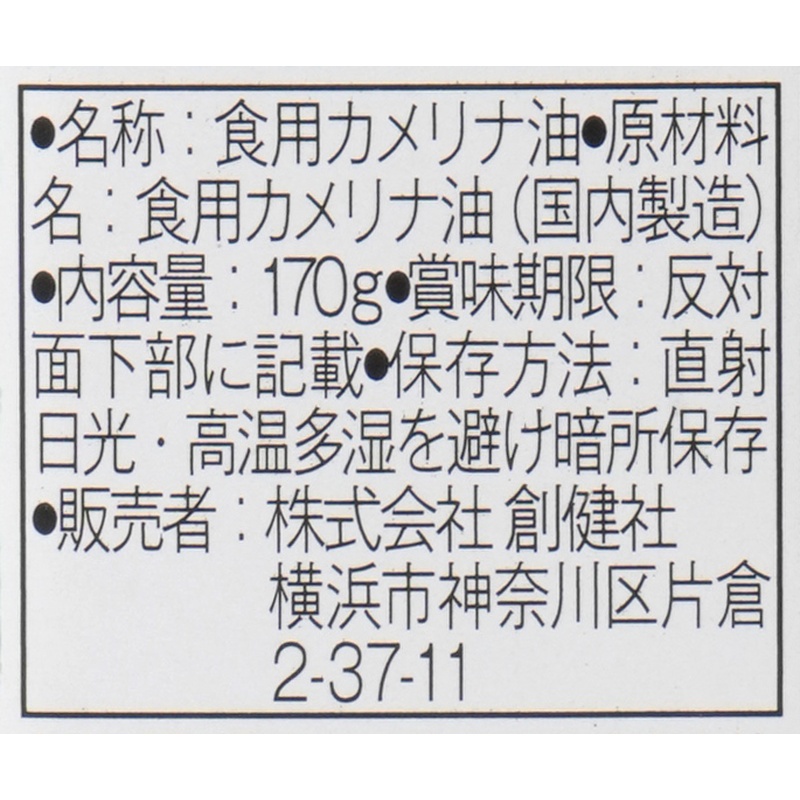 ●名称：食用カメリナ油●原材料
名：食用カメリナ油（国内製造）
●内容量：170g●賞味期限：反対
面下部に記載●保存方法：直射
日光・高温多湿を避け暗所保存
●販売者：株式会社 創健社
横浜市神奈川区片倉
2-37-11